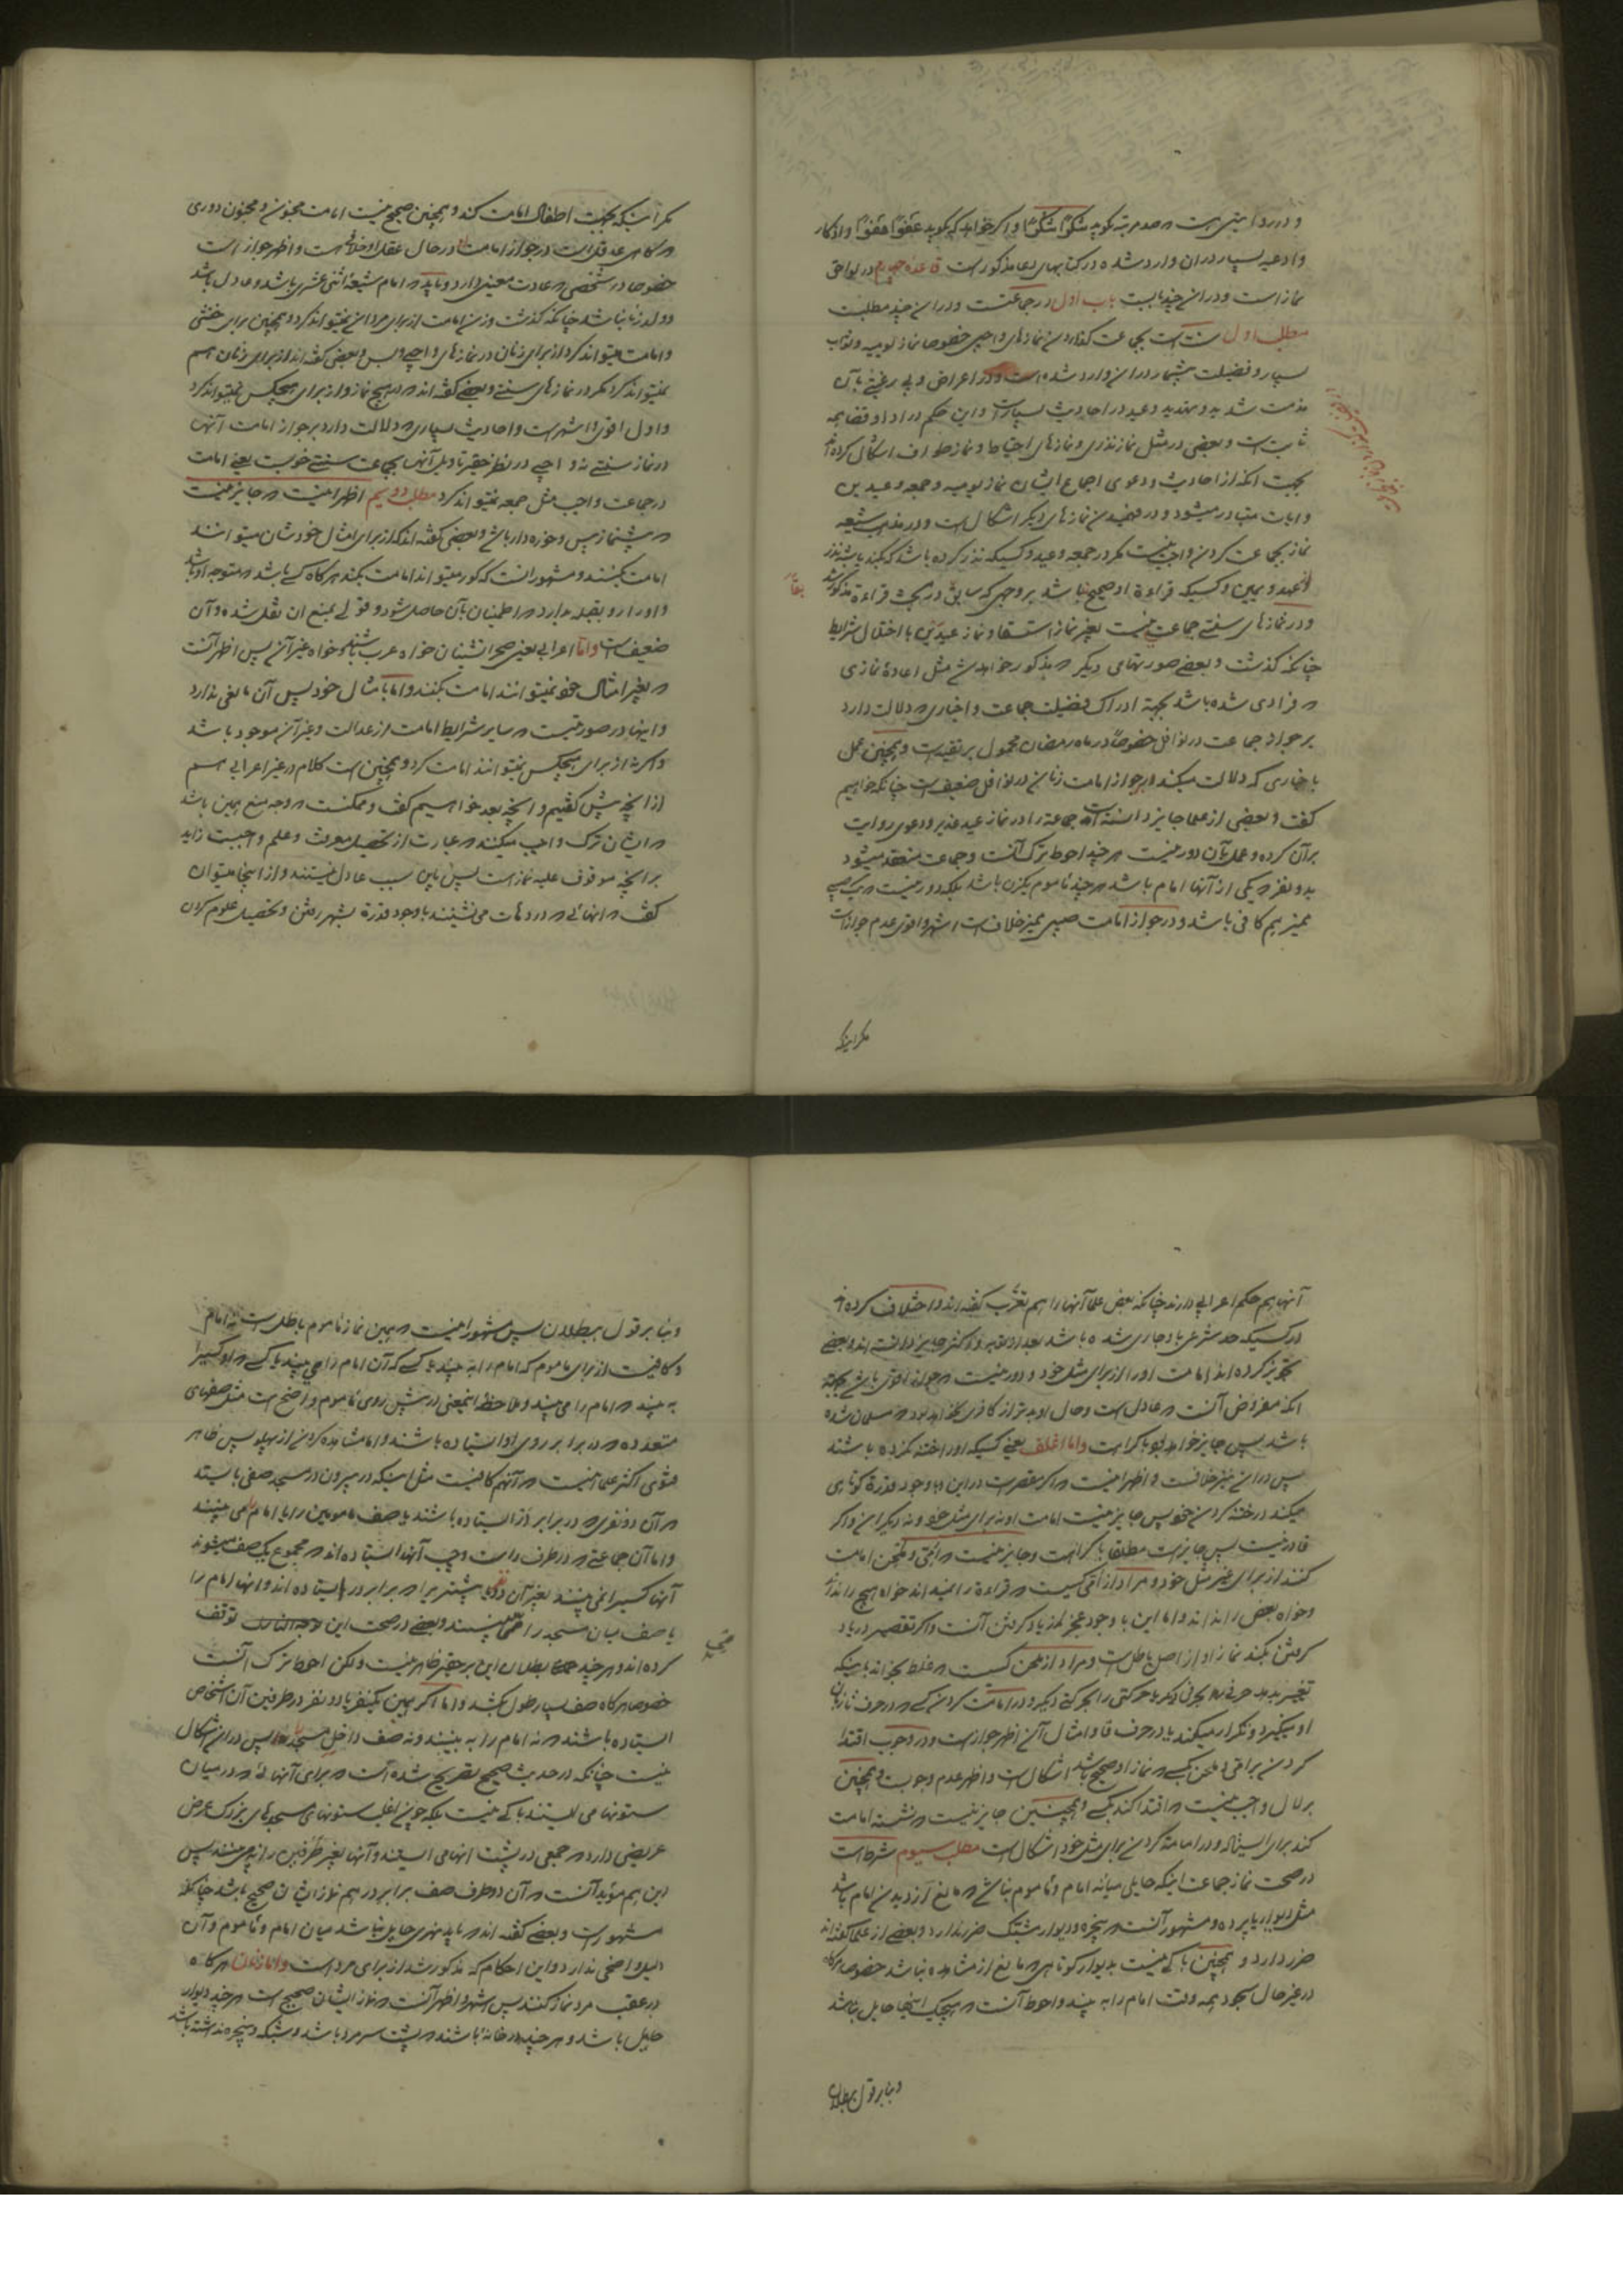 و در روایتی است که صد مرتبه بگوید شکرًا شکرًا و اگر خواهد که بگوید عفوًا عفوًا و اذکار
و ادعیه بسیار در آن وارد شده در کتابهای دعا مذکور است قاعده چهارم در لواحق
نماز است و در آن چند بابست باب اول در جماعتست و در این چند مطلبست
مطلب اول سنت است بجماعت کذاردن نمازهای واجبی خصوصا نماز یومیه و ثواب
بسیار و فضیلت بیشمار در این وارد شده است و در اعراض و بی رغبتی بآن
مذمت شدید و تهدید و وعید در احادیث بسیار است و این حکم در ادا و قضا همه
ثابت است و بعضی در مثل نماز نذری و نمازهای احتیاط و نماز طواف اشکال کرده‌اند
بجهت آنکه از احادیث و دعوی اجماع ایشان نماز یومیه و جمعه و عیدین
و آیات متبادر میشود و در فهمیدن نمازهای دیگر اشکال است و در مذهب شیعه
نماز بجماعت کردن واجب نیست مگر در جمعه و عید و کسیکه نذر کرده باشد که بکند یا بشبه نذر
از عهد و یمین و کسیکه قراءة او صحیح نباشد بر وجهی که سابق در بحث قراءة مذکور شد
و در نمازهای سنتی جماعت نیست بغیر نماز استسقا و نماز عیدین با اختلال شرایط
چنانکه گذشت و بعضی صورتهای دیگر که مذکور خواهد شد مثل اعاده نمازی
که فرادی شده باشد بجهة ادراک فضیلت جماعت و اخباری که دلالت دارد
بر جواز جماعت در نوافل خصوصًا در ماه رمضان محمول بر تقیه است و همچنین عمل
باخباری که دلالت میکند بر جواز امامت زنان در نوافل ضعیف است چنانکه خواهیم
گفت و بعضی از علما جایز دانسته‌اند جماعة را در نماز عید غدیر و دعوی روایت
بر آن کرده و عمل بآن دور نیست هر چند احوط ترک آنست و جماعت منعقد میشود
بدو نفر که یکی از آنها امام باشد هر چند مأموم یکزن باشد بلکه دور نیست که یک صبی
ممیز هم کافی باشد و در جواز امامت صبی ممیز خلاف است اشهر و اقوی عدم جواز است
مگر اینکه
مگر اینکه بجهت اطفال امامت کند و همچنین صحیح نیست امامت مجنون و مجنون دوری
که گاهی عقل است در جواز امامت او در حال عقل او خلاف است و اظهر جواز است
خصوصا در شخصی که عادت معینی دارد و باید که امام شیعه اثنی عشری باشد و عادل باشد
و ولد زنا نباشد چنانکه گذشت و زن امامت از برای مردان نمیتواند کرد و همچنین برای خنثی
و امامت میتواند کرد از برای زنان در نمازهای واجبی و بس و بعضی گفته‌اند از برای زنان هم
نمیتواند کرد مگر در نمازهای سنتی و بعضی گفته‌اند که در هیچ نماز و از برای هیچکس نمیتواند کرد
و اول اقوی و اشهر است و احادیث بسیاری که دلالت دارد بر جواز امامت آنها
در نماز سنتی نه واجبی در نظر حقیر تأویل آنها بجماعت سنتی خوبست یعنی امامت
در جماعت واجب مثل جمعه نمیتواند کرد مطلب دویم اظهر اینست که جایز نیست
که پیشنماز پیس و خوره‌دار باشد و بعضی گفته‌اند که از برای امثال خودشان میتوانند
امامت بکنند و مشهور آنست که کور میتواند امامت بکند هر گاه کسی باشد که متوجه او باشد
و او را رو بقبله بدارد که اطمینان بآن حاصل شود و قولی بمنع آن نقل شده و آن
ضعیف است و اما اعرابی یعنی صحرانشینان خواه عرب باشند و خواه غیر آن پس اظهر آنست
که بغیر امثال خود نمیتوانند امامت بکنند و اما بامثال خود پس آن مانعی ندارد
و اینها در صورتیست که سایر شرایط امامت از عدالت و غیر آن موجود باشد
و اگر نه از برای هیچکس نمیتوانند امامت کرد و همچنین است کلام در غیر اعرابی هم
از آنچه پیش گفتیم و آنچه بعد خواهیم گفت و ممکنست که وجه منع همین باشد
که ایشان ترک واجب میکنند که عبارت از تحصیل معرفت و علم واجبست زاید
بر آنچه موقوف علیه نماز است پس باین سبب عادل نیستند و از اینجا میتوان
گفت که آنهائی که در دهات می‌نشینند با وجود قدرة بشهر رفتن و تحصیل علوم کردن
آنها هم حکم اعرابی دارند چنانکه بعض علما آنها را هم تعرّب گفته‌اند و اختلاف کرده‌اند
در کسیکه حد شرعی باو جاری شده باشد بعد از توبه او اکثر جایز دانسته‌اند و بعضی
تجویز کرده‌اند امامت او را از برای مثل خود و دور نیست که جواز اقوی باشد بجهة
آنکه مفروض آنست که عادل است و حال او بدتر از کافری نخواهد بود که مسلمان شده
باشد پس جایز خواهد بود با کراهت و اما اغلف یعنی کسیکه او را ختنه نکرده باشند
پس در این نیز خلافست و اظهر اینست که اگر مقصر است در این و با وجود قدرة کوتاهی
میکند در ختنه کردن خود پس جایز نیست امامت او نه برای مثل خود و نه دیگران و اگر
قادر نیست پس جایز است مطلقا با کراهت و جایز نیست که امّی و ملحن امامت
کنند از برای غیر مثل خود و مراد از امّی کسیست که قراءة را نمیداند خواه هیچ را نداند
و خواه بعض را نداند و اما این با وجود عجز از یاد گرفتن آنست و اگر تقصیر در یاد
گرفتن بکند نماز او از اصل باطل است و مراد از ملحن کسیست که غلط بخواند باینکه
تغییر بدهد حرفی را بحرفی دیگر یا حرکتی را بحرکتی دیگر و در امامت کردن کسی که در حرف تا زبان
او میگیرد و تکرار میکند یا در حرف فا و امثال آن اظهر جواز است و در وجوب اقتدا
کردن بر امّی و ملحن بکسی که نماز او صحیح باشد اشکال است و اظهر عدم وجوبست و همچنین
بر لال واجب نیست که اقتدا کند بکسی و همچنین جایز نیست که نشسته امامت
کند برای ایستاده و در امامة کردن برای مثل خود اشکال است مطلب سیوم شرط است
در صحت نماز جماعت اینکه حایلی میانه امام و مأموم نباشد که مانع از دیدن امام باشد
مثل دیوار یا پرده و مشهور آنست که پنجره و دیوار مشبک ضرر ندارد و بعضی از علما گفته‌اند
ضرر دارد و همچنین باکی نیست بدیوار کوتاهی که مانع از مشاهده نباشد خصوصا هرگاه
در غیر حال سجود همه وقت امام را به بیند و احوط آنست که هیچیک اینجا حایل نباشد
و بنا بر قول ببطلان
و بنا بر قول ببطلان پس مشهور اینست که همین نماز مأموم باطل است نه امام
و کافیست از برای مأموم که امام را به بیند یا کسی که آن امام را می بیند یا کسی که او کسی را
به بیند که امام را می بیند و ملاحظه اینمعنی در پیش روی مأموم واضح است مثل صفهای
متعدده که در برابر روی او ایستاده باشند و اما مشاهده کردن از پهلو پس ظاهر
فتوی اکثر علما اینست که آنهم کافیست مثل اینکه در بیرون در مسجد صفی بایستد
که آن دو نفری که در برابر در ایستاده باشند یا صف مأمومین را یا امام را می بینند
و اما آن جماعتی که در طرف راست و چپ آنها ایستاده‌اند که مجموع یک صف میشوند
آنها کسی را نمی بینند بغیر آن دو نفر یا بیشتر را که برابر در ایستاده‌اند و آنها امام را
یا صف میان مسجد را می بینند و بعضی در صحت این توقف
صحیح
کرده‌اند و هر چند بطلان این بر حقیر ظاهر نیست و لکن احوط ترک آنست
خصوصا هرگاه صف بسیار طول بکشد و اما اگر همین یکنفر یا دو نفر در طرفین آن اشخاص
ایستاده باشند که نه امام را به بینند و نه صف داخل مسجد را پس در این اشکال
نیست چنانکه در حدیث صحیح تصریح شده است که برای آنهائی که در میان
ستونها می ایستند باکی نیست بلکه چون اغلب ستونهای مسجدهای بزرگ عرض
عریضی دارد که جمعی در پشت آنها می ایستند و آنها بغیر طرفین را نمی بینند پس
این هم مؤید آنست که آن دو طرف صف برابر در هم نماز ایشان صحیح باشد چنانکه
مشهور است و بعضی گفته‌اند که باید نهری حایل نباشد میان امام و مأموم و آن
دلیل واضحی ندارد و این احکام که مذکور شد از برای مرد است و اما زنان هر گاه
در عقب مرد نماز کنند پس اشهر و اظهر آنست که نماز ایشان صحیح است هر چند دیوار
حایل باشد و هر چند در خانه باشند که پشت سر مرد باشد و شبکه و پنجره نداشته باشد